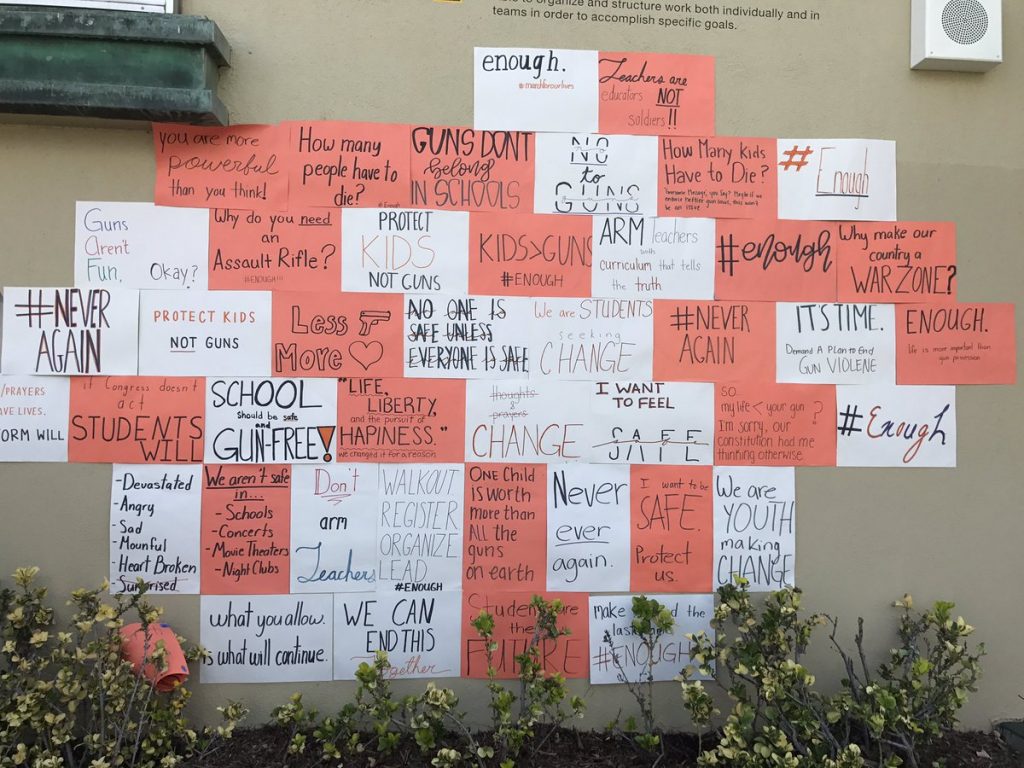 to organize and structure work both individually and in
teams in order to accomplish specific goals.
enough.
#marchforourlives
Teachers are
educators NOT
soldiers!!
you are more
powerful
than you think!
How many
people have to
die?
#Enough
GUNS DONT
belong
IN SCHOOLS
NO
to
GUNS
How Many Kids
Have to Die?
#
Enough
Guns
Aren't
Fun,
Okay?
Why do you need
an
Assault Rifle?
#ENOUGH!!!
PROTECT
KIDS
NOT GUNS
KIDS>GUNS
#ENOUGH
ARM Teachers
with
curriculum that tells
the truth
#enough
Why make our
country a
WAR ZONE?
#NEVER
AGAIN
PROTECT KIDS
NOT GUNS
Less
More
NO ONE IS
SAFE UNLESS
EVERYONE IS SAFE
We are STUDENTS
seeking
CHANGE
#NEVER
AGAIN
IT'S TIME.
Demand A Plan to End
GUN VIOLENE
ENOUGH.
life is more important than
gun possession
/PRAYERS
AVE LIVES.
FORM WILL
if Congress doesn't
act
STUDENTS
WILL
SCHOOL
should be safe
and
GUN-FREE!
"LIFE,
LIBERTY,
and the pursuit of
HAPINESS."
we changed it for a reason
thoughts
&
prayers
CHANGE
I WANT
TO FEEL
SAFE
so
my life < your gun ?
I'm sorry, our
constitution had me
thinking otherwise.
#Enough
-Devastated
-Angry
-Sad
-Mounful
-Heart Broken
-Surprised
We aren't safe
in...
-Schools
-Concerts
-Movie Theaters
-Night Clubs
Don't
arm
Teachers
WALKOUT
REGISTER
ORGANIZE
LEAD
#ENOUGH
ONE Child
is worth
more than
All the
guns
on earth
Never
ever
again.
I want to be
SAFE.
Protect
us.
We are
YOUTH
making
CHANGE
what you allow.
is what will continue.
WE CAN
END THIS
together
Students are
the
FUTURE
make the
last
#ENOUGH